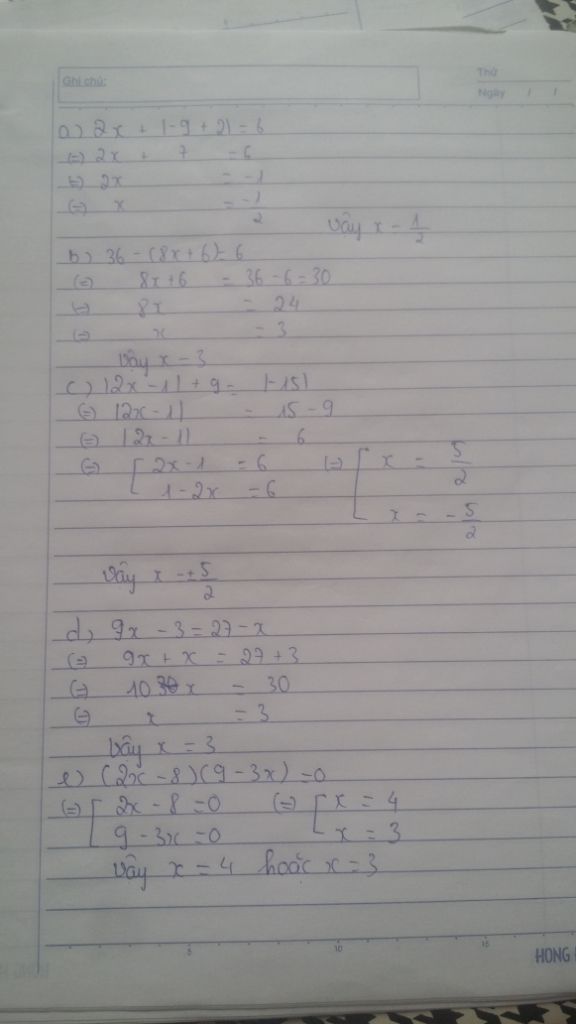 Ghi chú:
Thứ
Ngày / /
a) 2x + |-9 + 2| = 6
(=) 2x + 7 = 6
(=) 2x = -1
(=) x = -1/2
Vậy x - 1/2
b) 36 - (8x + 6) = 6
(=) 8x + 6 = 36 - 6 = 30
(=) 8x = 24
(=) x = 3
Vậy x = 3
c) |2x - 1| + 9 = |-15|
(=) |2x - 1| = 15 - 9
(=) |2x - 1| = 6
(=) [ 2x - 1 = 6 (=) [ x = 5/2
1 - 2x = 6
x = -5/2
Vậy x = ±5/2
d) 9x - 3 = 27 - x
(=) 9x + x = 27 + 3
(=) 10 x = 30
(=) x = 3
Vậy x = 3
e) (2x - 8)(9 - 3x) = 0
(=) [ 2x - 8 = 0 (=) [ x = 4
9 - 3x = 0 x = 3
Vậy x = 4 hoặc x = 3
5 10 15
HONG